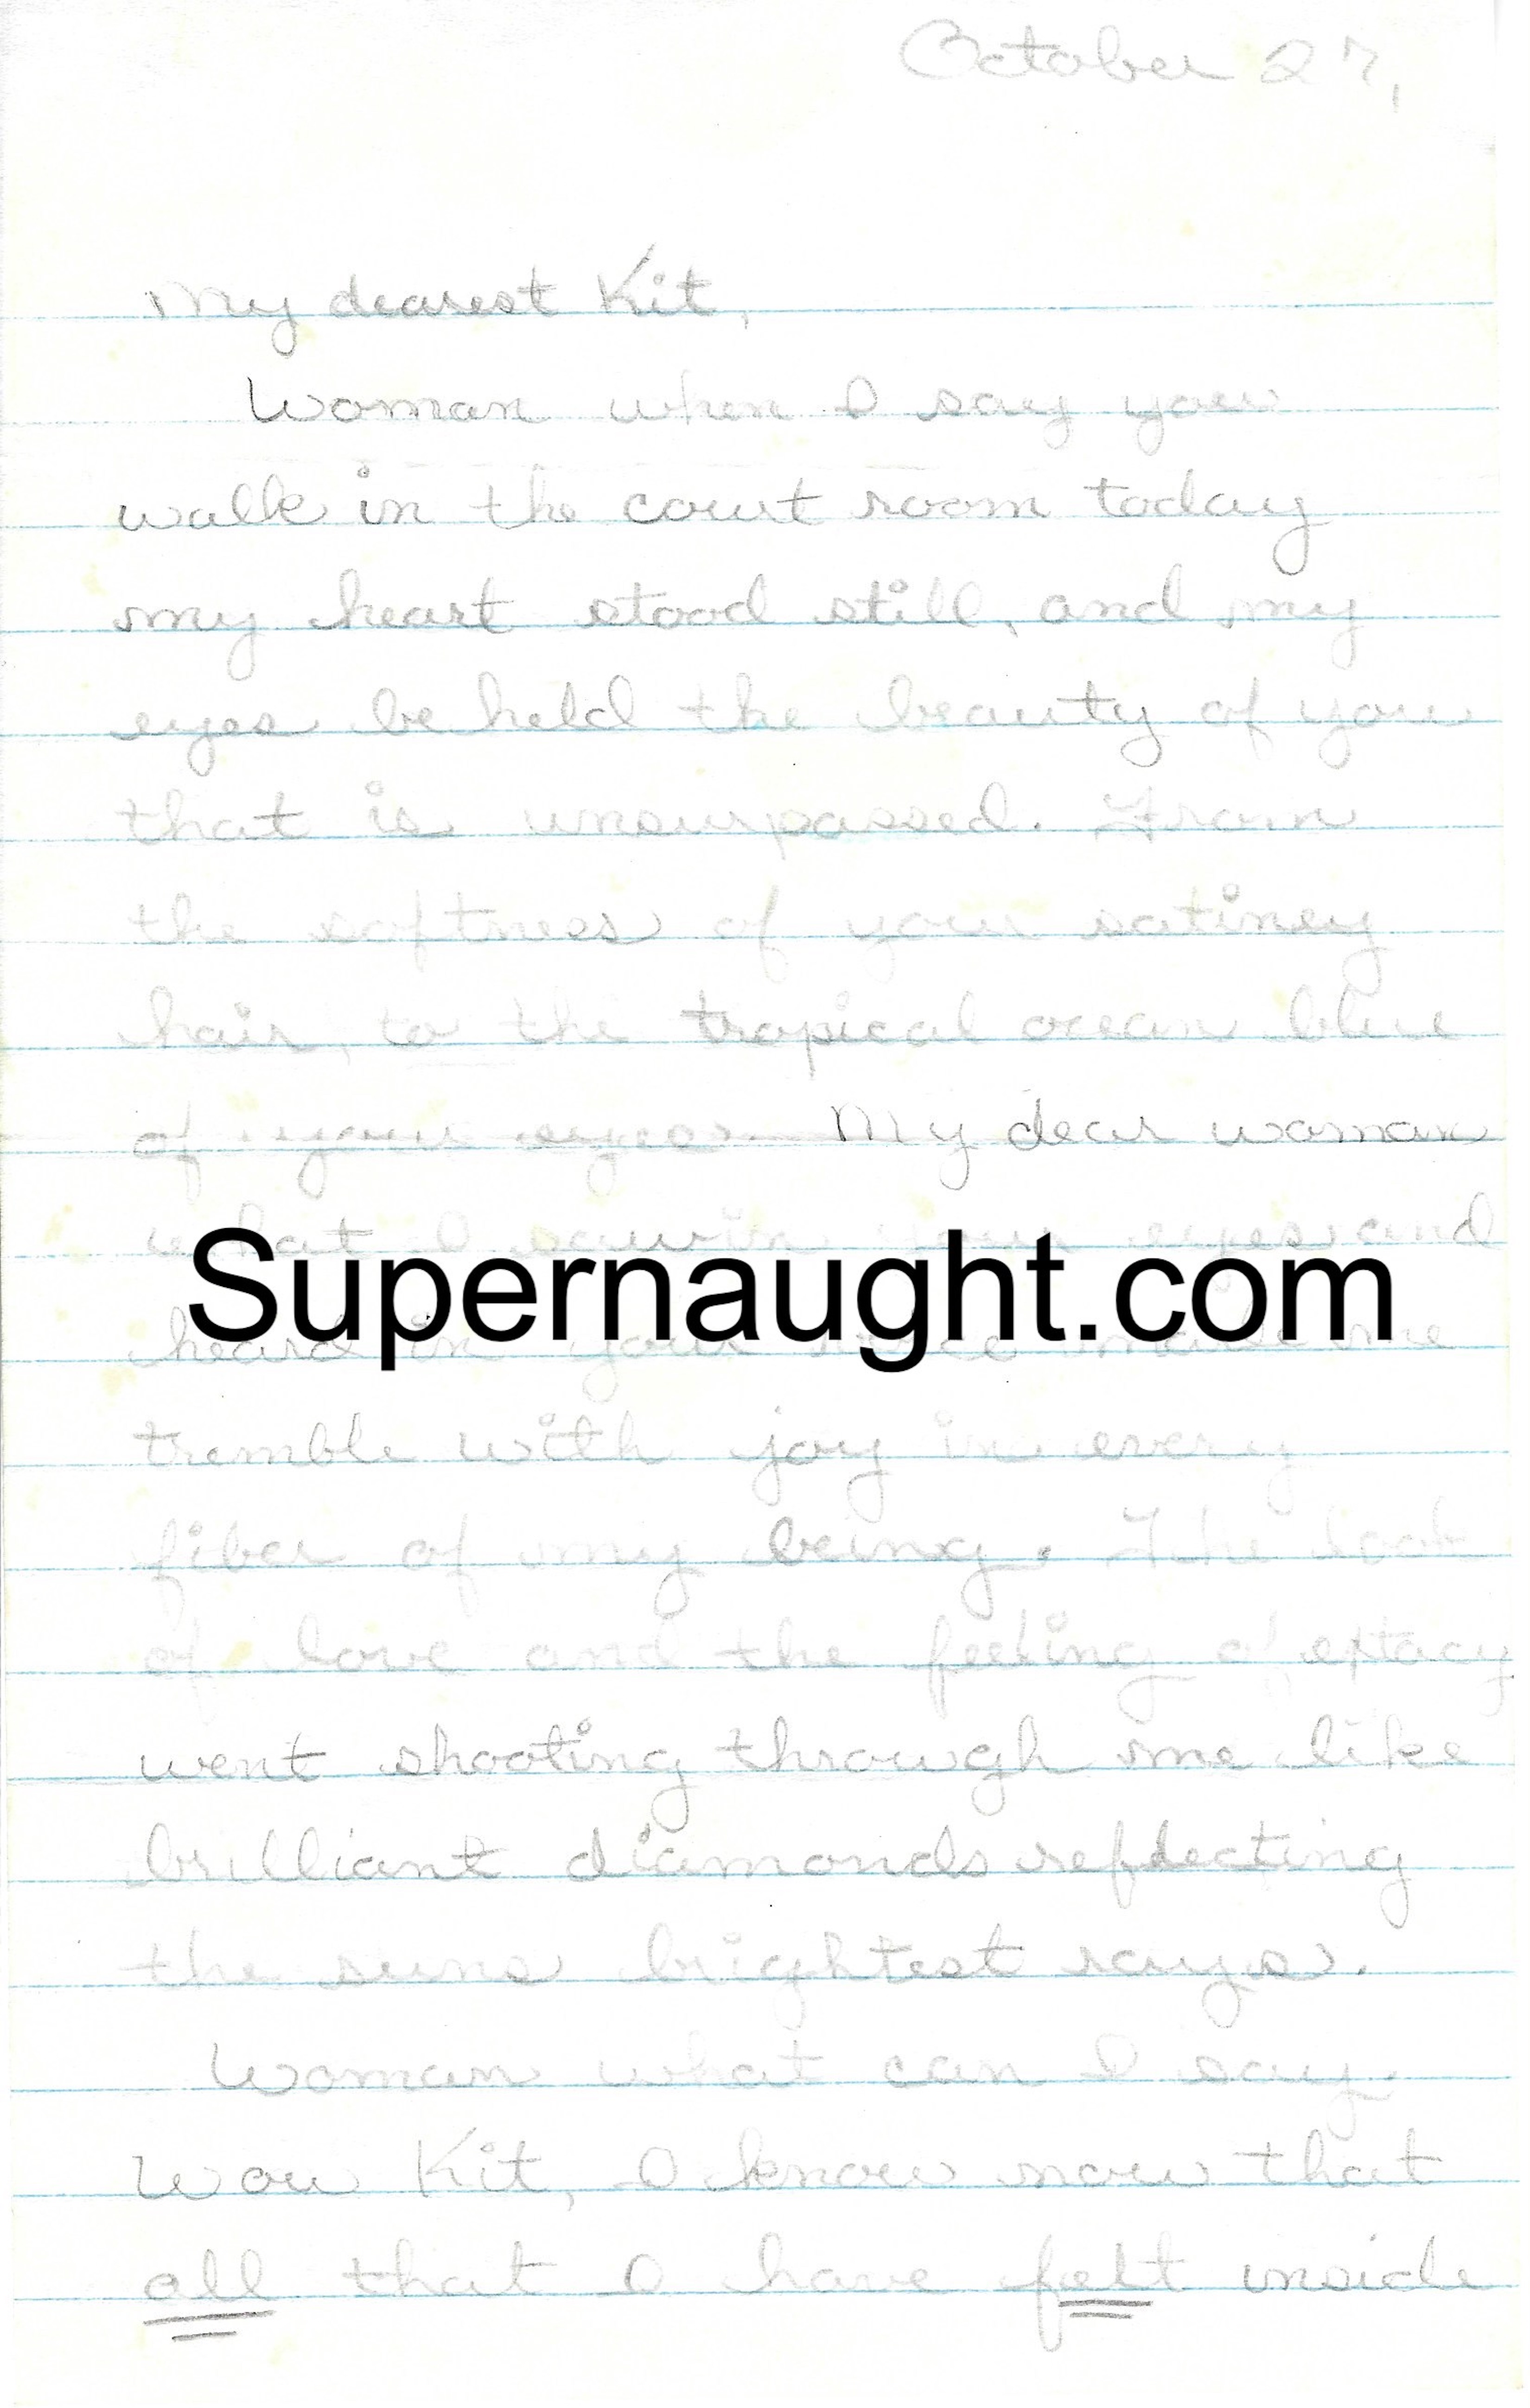 October 27,
My dearest Kit,
Woman when I say you
walk in the court room today
my heart stood still, and my
eyes be held the beauty of you
that is unsurpassed. From
the softness of your satiney
hair, to the tropical ocean blue
of your eyes. My dear woman
what I saw in your eyes and
Supernaught.com
heard in your voice made me
tremble with joy in every
fiber of my being. The look
of love and the feeling of extacy
went shooting through me like
brilliant diamonds reflecting
the suns brightest rays.
Woman what can I say.
Wow Kit, I know now that
all that I have felt inside